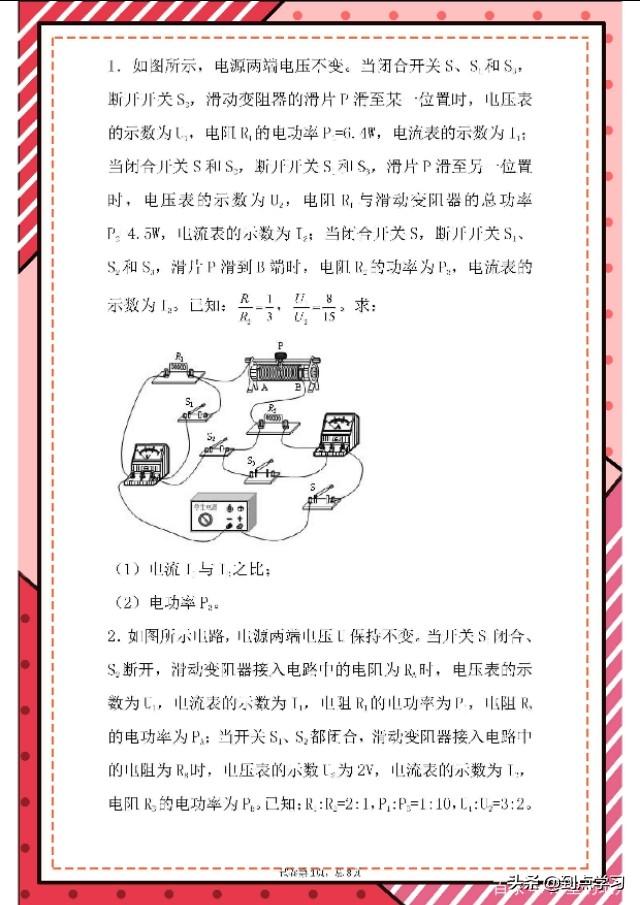 1. 如图所示，电源两端电压不变。当闭合开关 S、S₁和 S₃，
断开开关 S₂，滑动变阻器的滑片 P 滑至某一位置时，电压表
的示数为 U₁，电阻 R₁的电功率 P₁=6.4W，电流表的示数为 I₁；
当闭合开关 S 和 S₂，断开开关 S₁和 S₃，滑片 P 滑至另一位置
时，电压表的示数为 U₂，电阻 R₁与滑动变阻器的总功率
P₂ 4.5W，电流表的示数为 I₂；当闭合开关 S，断开开关 S₁、
S₂和 S₃，滑片 P 滑到 B 端时，电阻 R₂的功率为 P₃，电流表的
示数为 I₃。已知：R/R₂=1/3，U/U₂=8/15。求：
P
R₁
A B
S₁
R₂
S₂
S₃
S
学生电源
（1）电流 I 与 I₂之比；
（2）电功率 P₃。
2. 如图所示电路，电源两端电压 U 保持不变。当开关 S 闭合、
S₂断开，滑动变阻器接入电路中的电阻为 R_A时，电压表的示
数为 U₁，电流表的示数为 I₁，电阻 R₁的电功率为 P，电阻 R
的电功率为 P_A；当开关 S₁、S₂都闭合，滑动变阻器接入电路中
的电阻为 R_B时，电压表的示数 U₂为 2V，电流表的示数为 I₂，
电阻 R_B的电功率为 P_B。已知：R:R₂=2:1，P₁:P_B=1:10，U₁:U₂=3:2。
头条 @到点学习